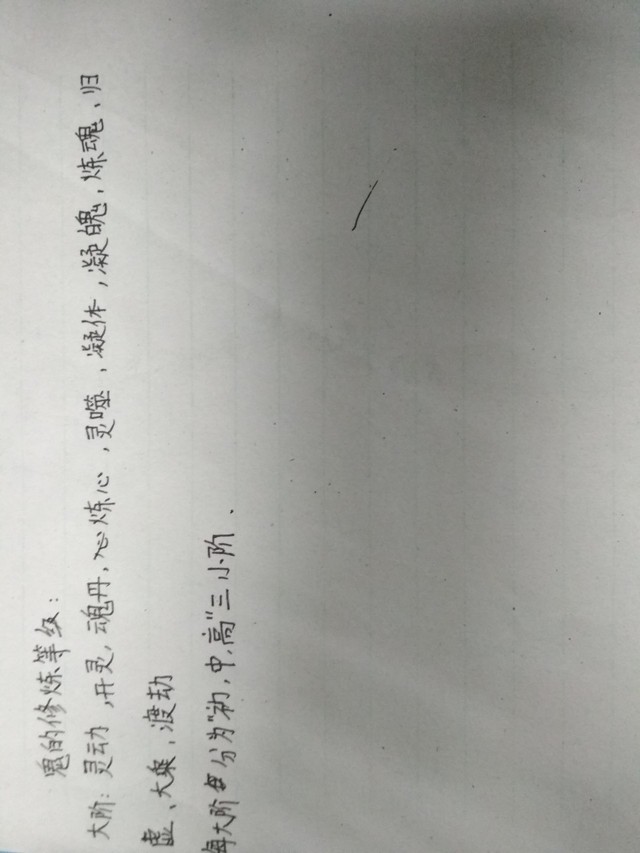 鬼的修炼等级：
大阶：灵动，开灵，魂丹，心炼心，灵噬，凝体，凝魄，炼魂、归
虚、大乘，渡劫
每大阶分为“初，中，高”三小阶、